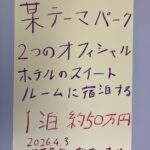 某テーマパーク
2つのオフィシャル
ホテルのスイート
ルームに宿泊する
1泊 約50万円
2026.4.3